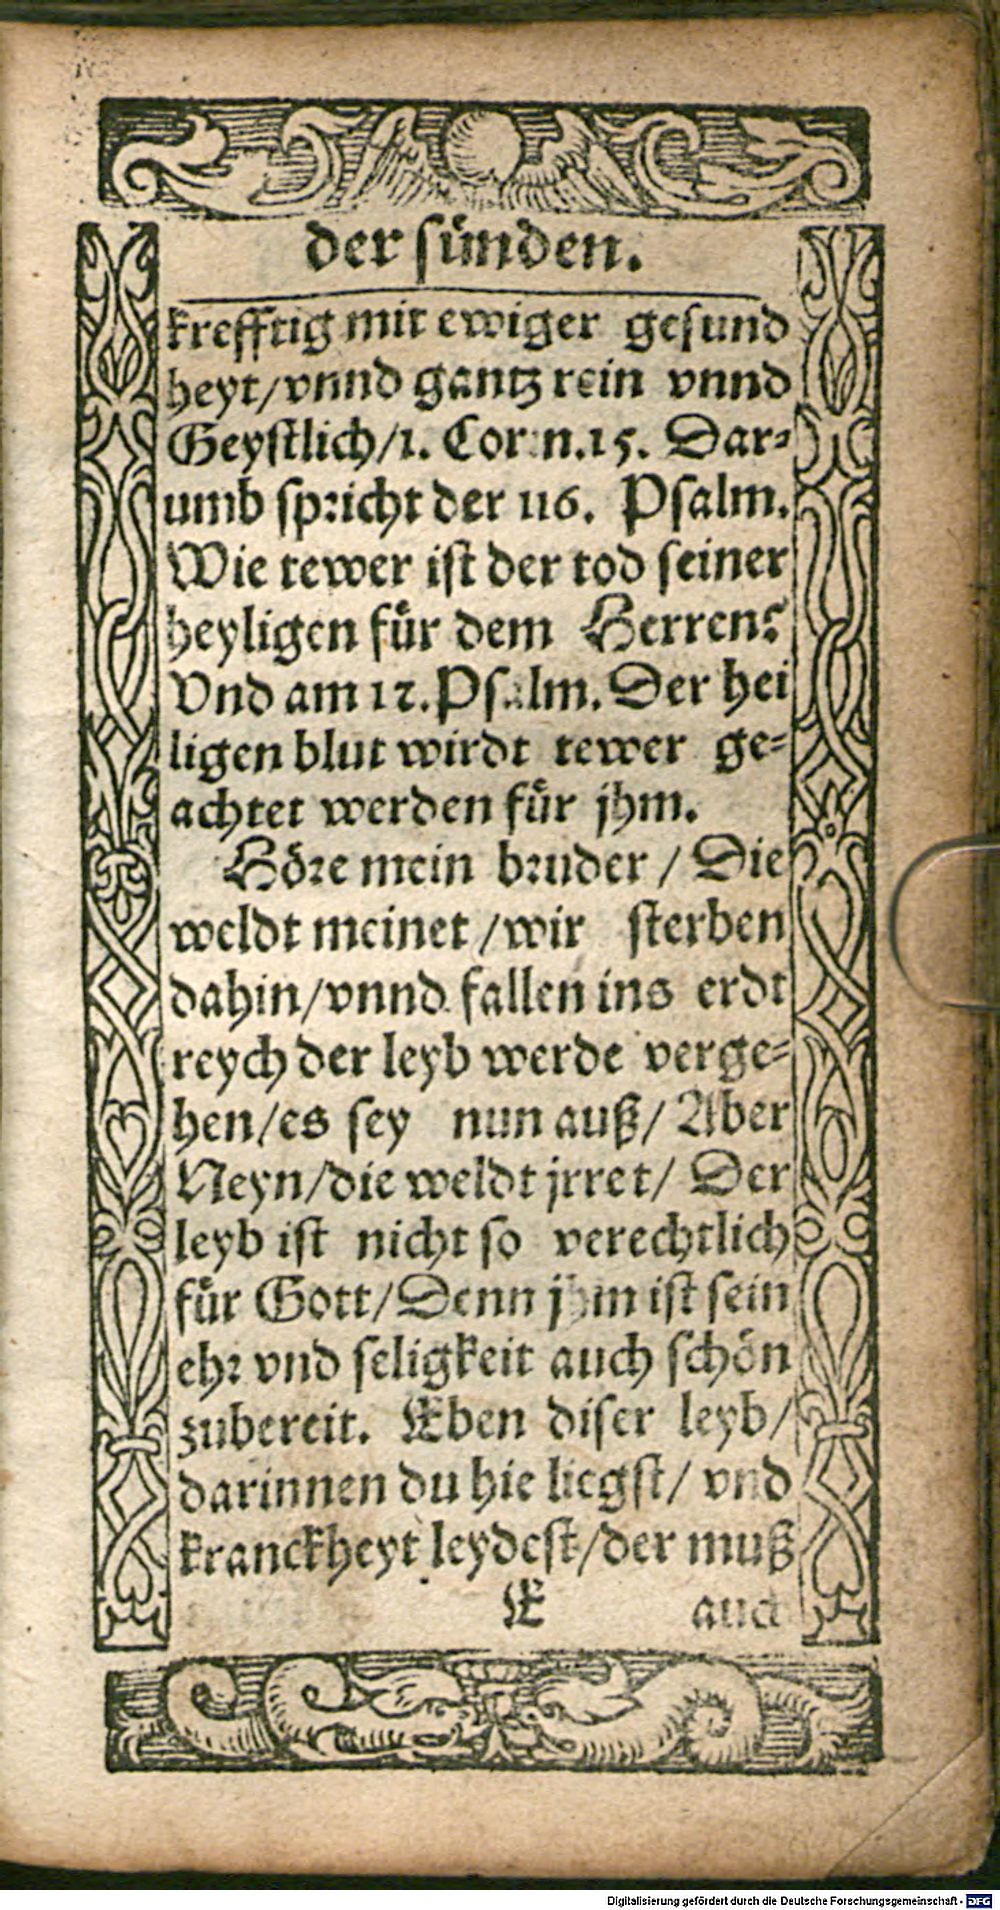 der sünden.
krefftig mit ewiger gesund
heyt/vnnd gantz rein vnnd
Geystlich/1. Corin.15. Dar⸗
umb spricht der 116. Psalm.
Wie tewer ist der tod seiner
heyligen für dem Herren?
Vnd am 12. Psalm. Der hei
ligen blut wirdt tewer ge⸗
achtet werden für jhm.
Höre mein bruder / Die
weldt meinet /wir sterben
dahin/vnnd fallen ins erdt
reych der leyb werde verge⸗
hen/es sey nun auß/ Aber
Neyn/die weldt jrret/ Der
leyb ist nicht so verechtlich
für Gott/Denn jhm ist sein
ehr vnd seligkeit auch schön
zubereit. Eben diser leyb/
darinnen du hie liegst/ vnd
kranckheyt leydest/der muß
E auch
Digitalisierung gefördert durch die Deutsche Forschungsgemeinschaft - DFG